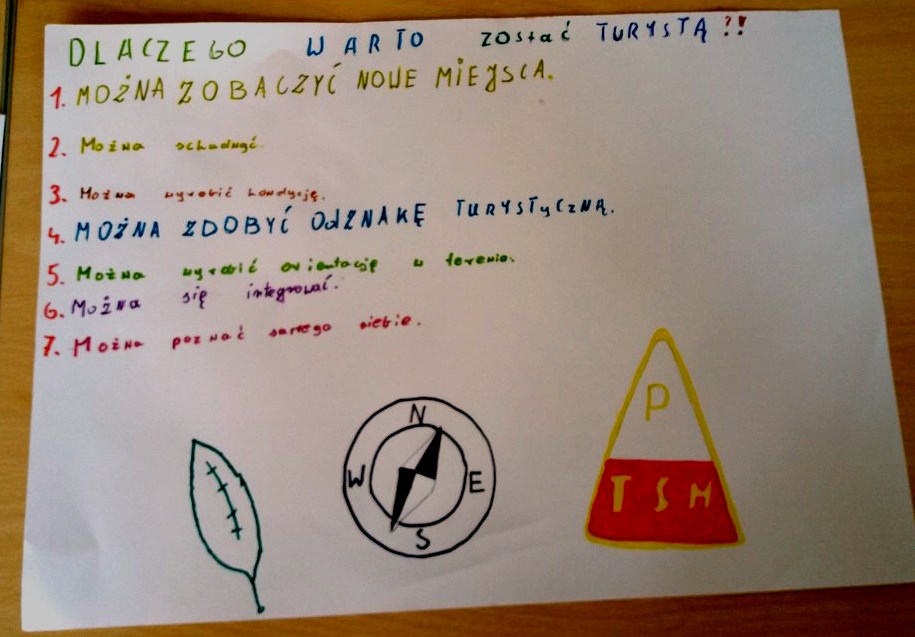 DLACZEGO WARTO zostać TURYSTĄ?!
1. MOŻNA ZOBACZYĆ NOWE MIEJSCA.
2. Można schudnąć.
3. Można wyrobić kondycję.
4. MOŻNA ZDOBYĆ OdZNAKĘ TURYSTyCzNĄ.
5. Można wyrobić orientację w terenie.
6. Można się integrować.
7. Można poznać samego siebie.
P
N
W E
T S M
S